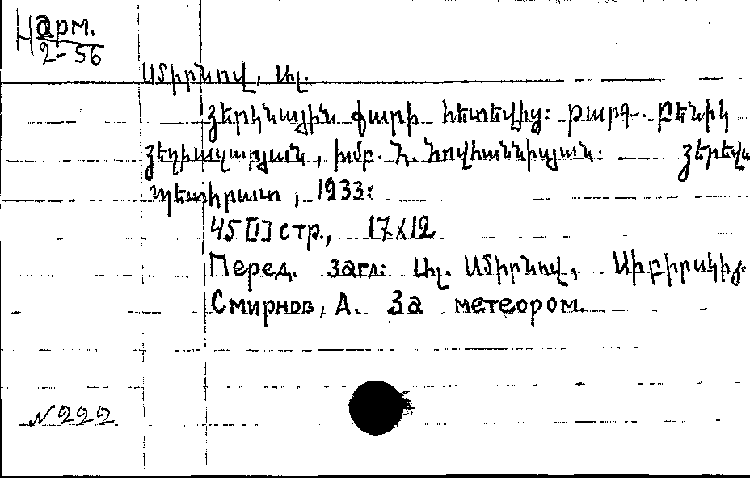 Нарм.
2-56
Սմիրնով, Ալ.
Յերկնային քարի հետեվից: թարգ. Բենիկ
Յեղիազարյան, խմբ. Հ. Հովհաննիսյան: Յերեվա
պետհրատ, 1933:
45 [1] стр., 17X12
Перед. загл: Ալ. Սմիրնով, Սիբիրակիյ.
Смирнов, А. За метеором.
N 222